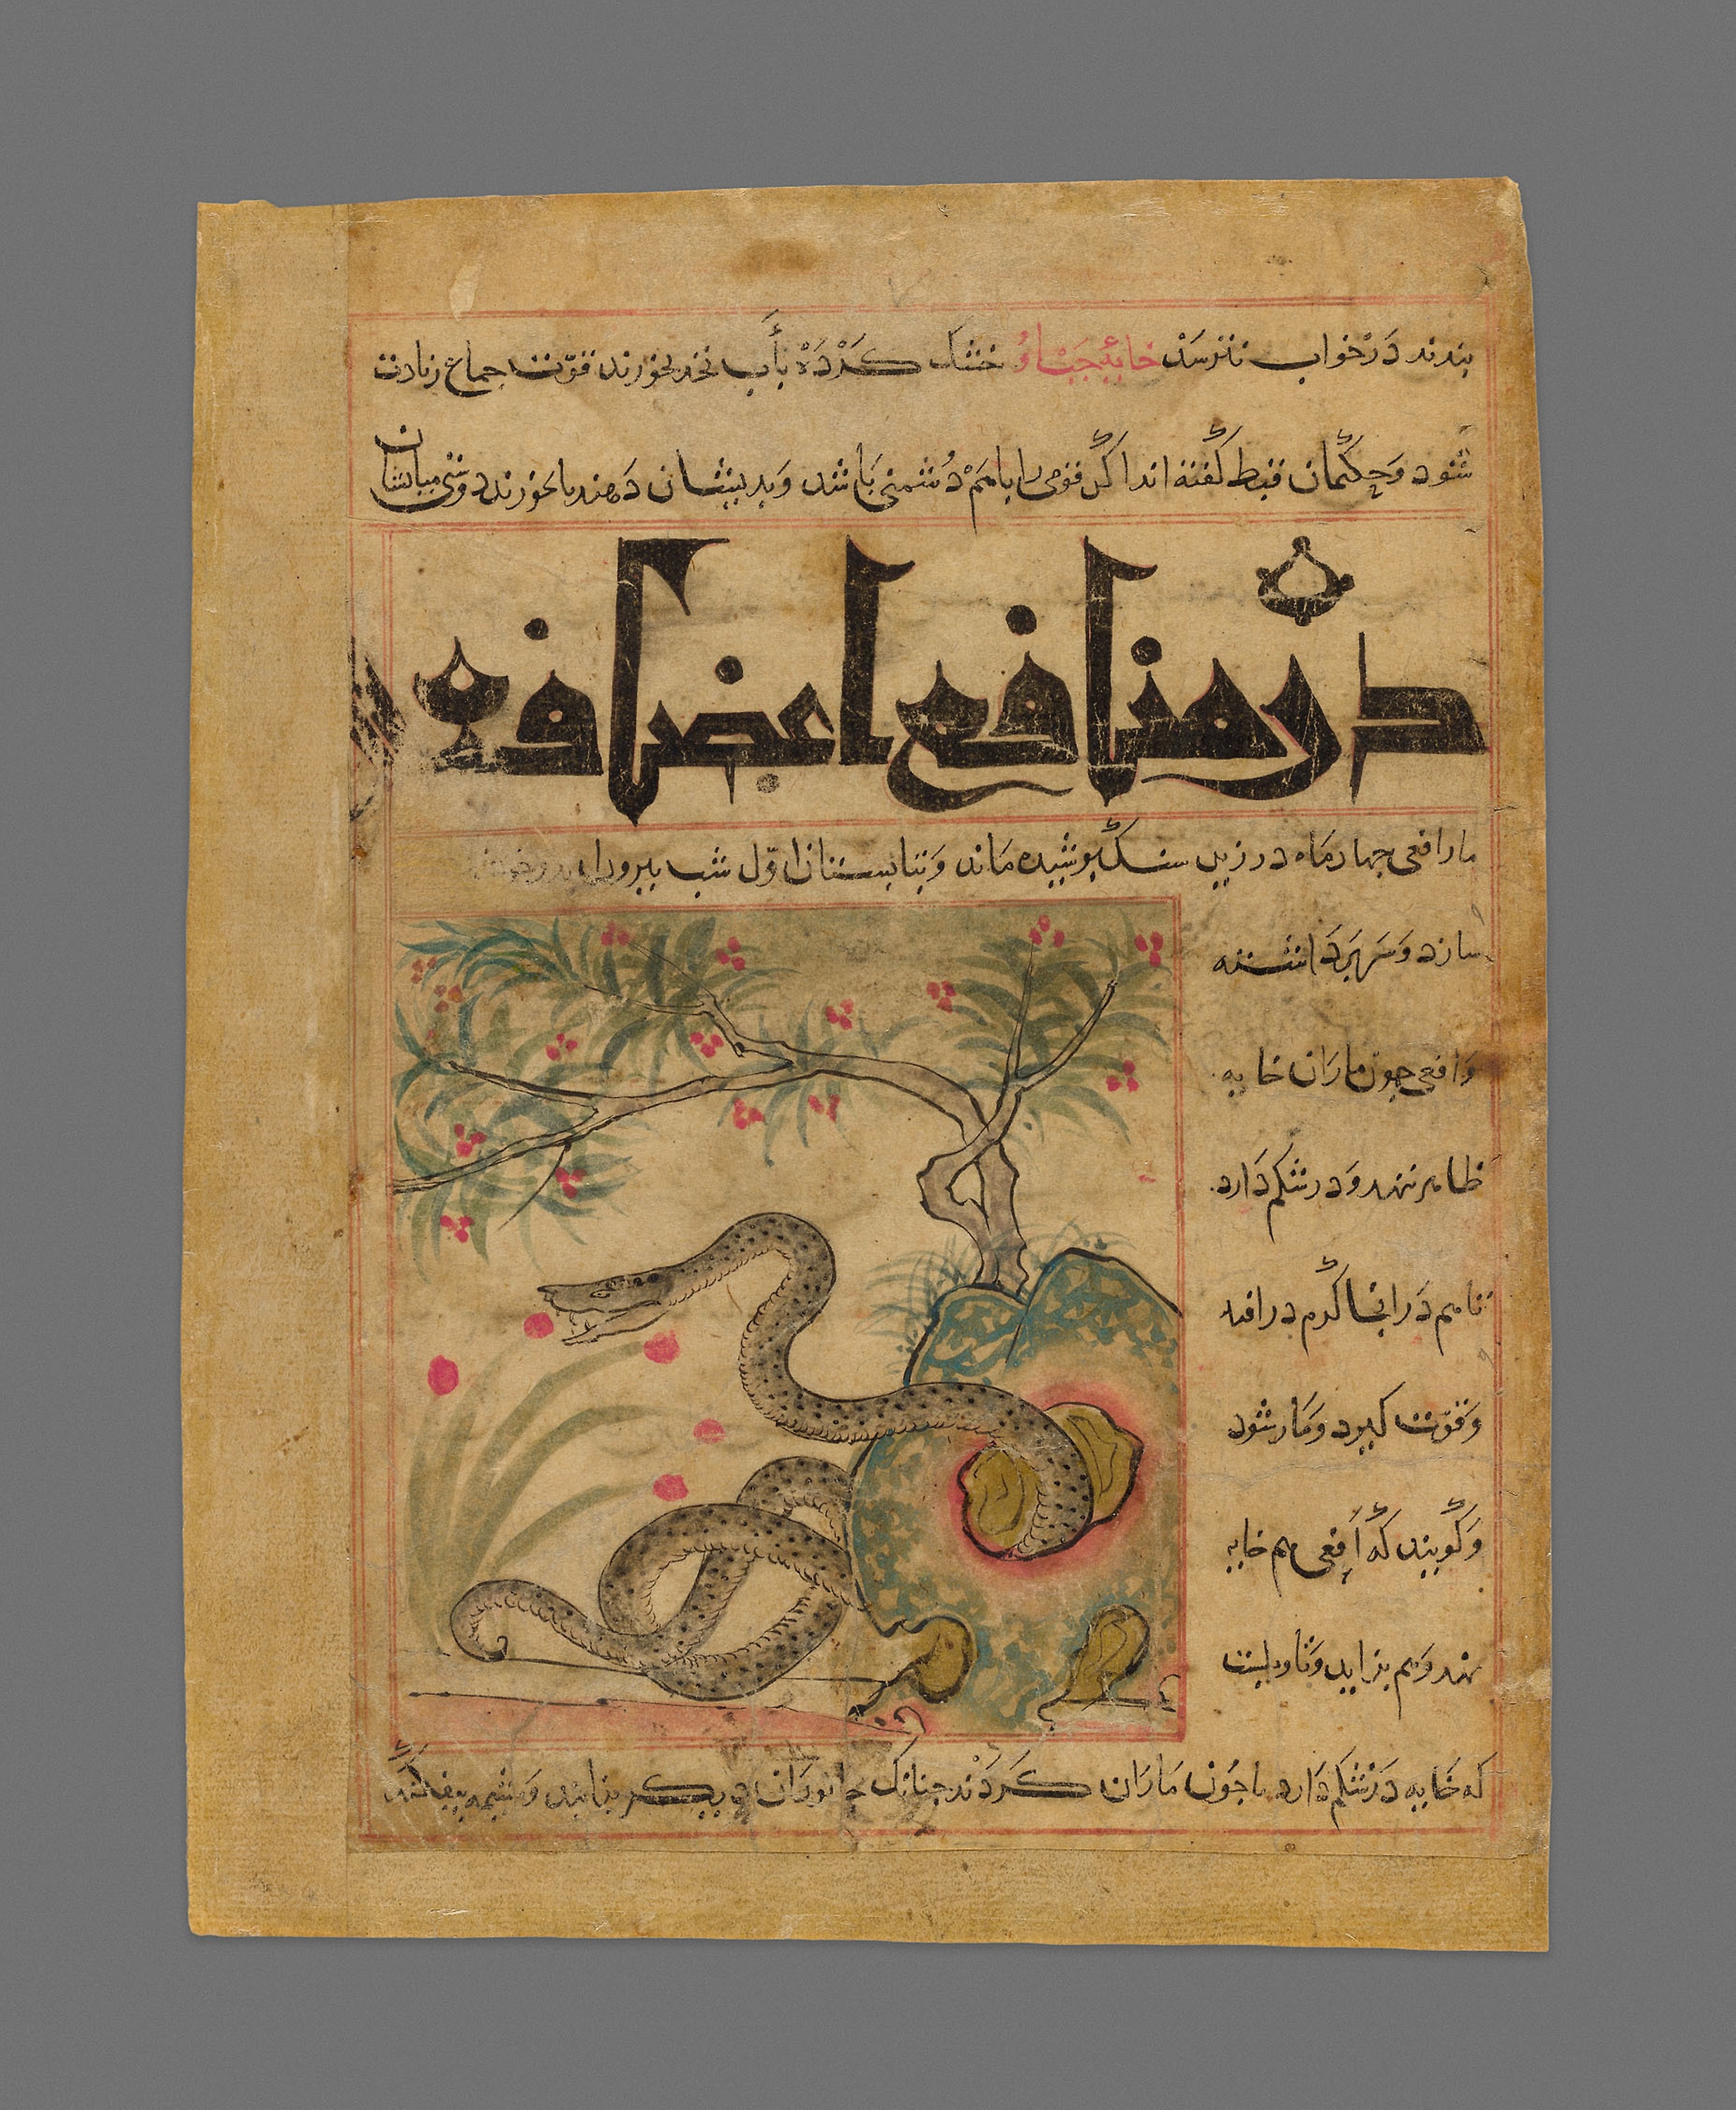 بندند در خواب نترسد خایهٔ حباری خشک کرده بآب نخد بخورند قوّت جماع زیادت
شود و حکیمان قبط گفته اند اگر قومی را باهم دشمنی باشد و بدیشان دهند تا بخورند دوستی میانشان
در منافع اعضا
مار افعی چهار ماه در زیر سنگ پوشیده ماند و بتابستان اوّل شب بیرون
سازد و سر برداشته
و افعی چون ماران خایه
ظاهر ننهد و در شکم دارد
تا هم در انجا گرم در افتد
و قوّت کیرد و مار شود
و گویند که افعی هم خایه
نهد و هم بزاید
که خایه در شکم دارد تا چون ماران کردند چنانک جانوران دیکر بزایند و مشیمه بیفکند